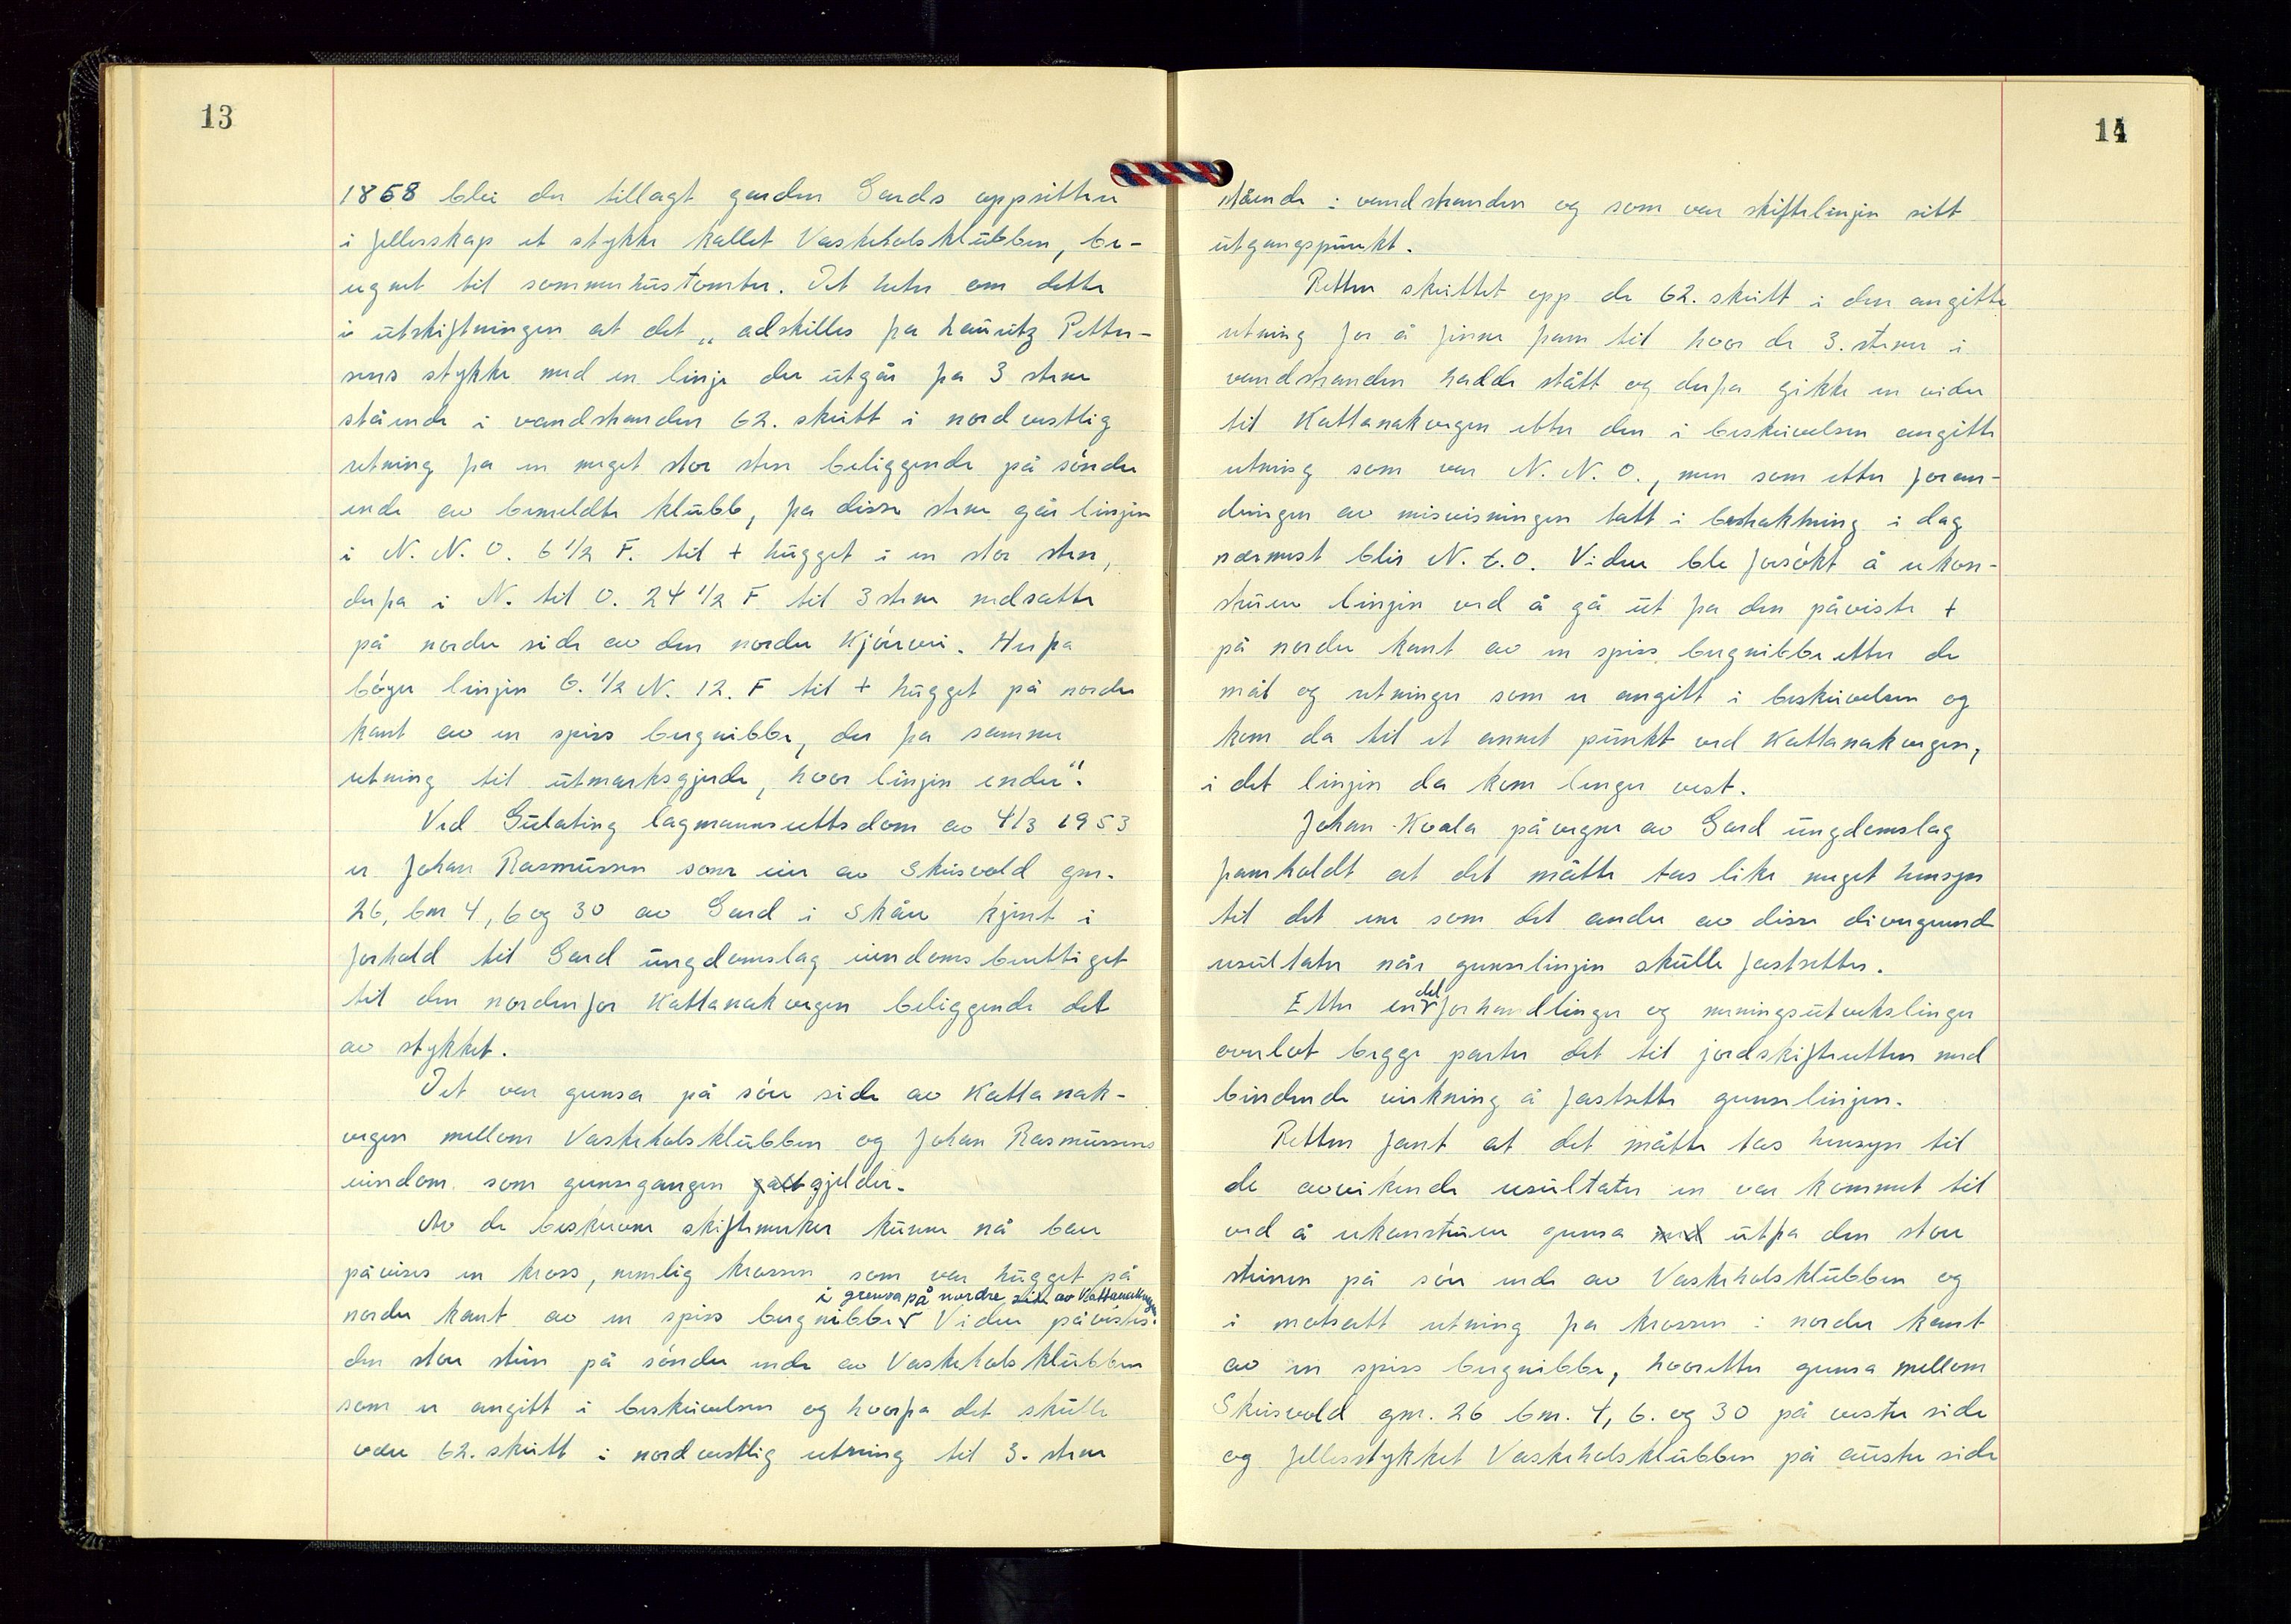 13
1868 blei der tillagt garden Gards oppsittere
i fellesskap et stykke kallet Vaskeholsklubben, be-
regnet til sommerhustomter. Det heter om dette
i utskiftningen at det „adskilles fra Lauritz Petter-
sens stykke med en linje der utgår fra 3 stene
stående i vandstranden 62. skritt i nordvestlig
retning fra en meget stor sten beliggende på søndre
ende av bemeldte klubb, fra disse stene går linjen
i N. N. O. 6 1/2 F. til + hugget i en stor sten,
derfra i N. til O. 24 1/2 F til 3 stene nedsatte
på nordre side av den nordre Kjørvei. Herfra
bøyer linjen O. 1/2 N. 12. F til + hugget på nordre
kant av en spiss bergnibbe, der fra samme
retning til utmarksgjerde, hvor linjen ender".
Ved Gulating lagmannsrettsdom av 4/3 1953
er Johan Rasmussen som eier av Skrisvold gnr.
26, bnr 4, 6 og 30 av Gard i Skåre kjent i
forhold til Gard ungdomslag eiendomsberettiget
til den nordenfor Kattanakvegen beliggende del
av stykket.
Det var grensa på søre side av Kattanak-
vegen mellom Vaskeholsklubben og Johan Rasmussens
eiendom som grensegangen galt gjelder.
Av de beskrevne skiftemerker kunne nå bare
påvises en kross, nemlig krossen som var hugget på
i grensa på nordre side av Kattanakvegen
nordre kant av en spiss bergnibbe. Videre påvistes
den store stein på søndre ende av Vaskeholsklubben
som er angitt i beskrivelsen og hvorfra det skulle
være 62. skritt i nordvestlig retning til 3. stene
14
stående i vandstranden og som var skiftelinjen sitt
utgangspunkt.
Retten skrittet opp de 62. skritt i den angitte
retning for å finne fram til hvor de 3. stener i
vandstranden hadde stått og derfra gikk en vider
til Kattanakvegen etter den i beskrivelsen angitte
retning som var N. N. O., men som etter foran-
dringen av misvisningen tatt i betraktning i dag
nærmest blir N. t. O. Videre ble forsøkt å rekon-
struere linjen ved å gå ut fra den påviste +
på nordre kant av en spiss bergnibbe etter de
mål og retninger som er angitt i beskrivelsen og
kom da til et annet punkt ved Kattanakvegen,
i det linjen da kom lenger vest.
Johan Kvala på vegne av Gard ungdomslag
framholdt at det måtte tas like meget hensyn
til det ene som det andre av disse divergerende
resultater når grenselinjen skulle fastsettes.
Etter en del forhandlinger og meningsutvekslinger
overlot begge parter det til jordskifteretten med
bindende virkning å fastsette grenselinjen.
Retten fant at det måtte tas hensyn til
de avvikende resultater en var kommet til
ved å rekonstruere grensa med ut fra den store
steinen på søre ende av Vaskeholsklubben og
i motsatt retning fra krossen i nordre kant
av en spiss bergnibbe, hvoretter grensa mellom
Skrisvold gnr. 26 bnr. 4, 6. og 30 på vestre side
og fellesstykket Vaskeholsklubben på austre side